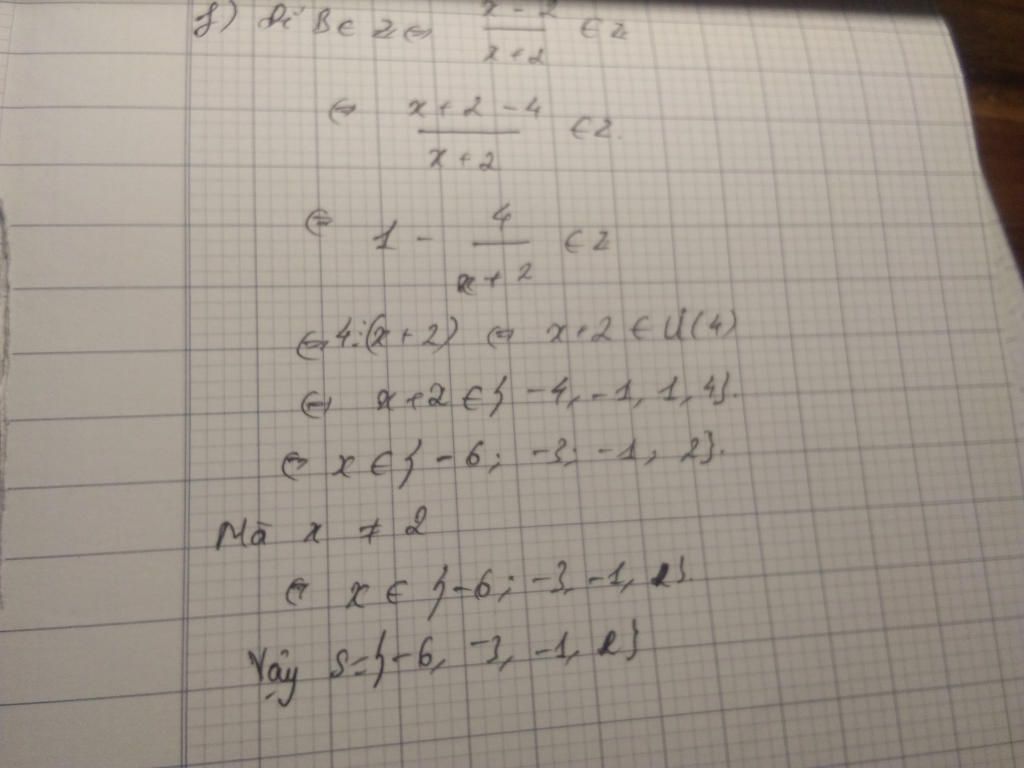 f) Để B ∈ Z ⇔ x - 2 / x + 2 ∈ Z
⇔ x + 2 - 4 / x + 2 ∈ Z.
⇔ 1 - 4 / x + 2 ∈ Z
⇔ 4 ⋮ (x + 2) ⇔ x + 2 ∈ Ư(4)
⇔ x + 2 ∈ { -4, -1, 1, 4 }.
⇔ x ∈ { -6; -3; -1, 2 }.
Mà x ≠ 2
⇔ x ∈ { -6; -3, -1, 2 }.
Vậy S = { -6, -3, -1, 2 }